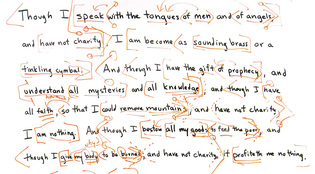 Though I speak with the tongues of men and of angels
and have not charity, I am become as sounding brass or a
tinkling cymbal. And though I have the gift of prophecy, and
understand all mysteries and all knowledge; and though I have
all faith, so that I could remove mountains, and have not charity,
I am nothing. And though I bestow all my goods to feed the poor, and
though I give my body to be burned, and have not charity, it profiteth me nothing.